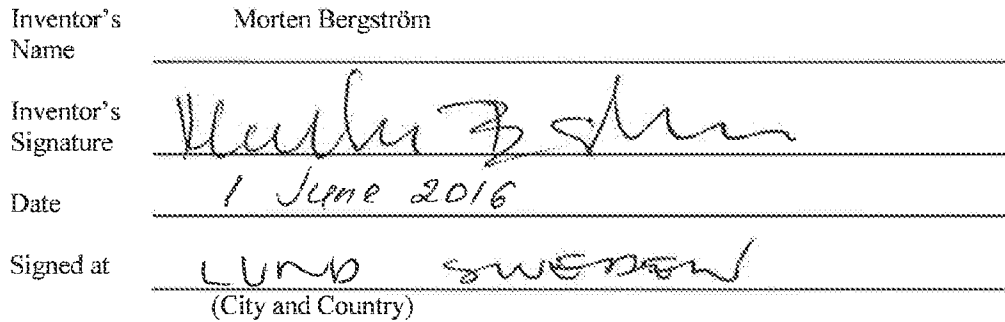 Inventor's Morten Bergström
Name
Inventor's
Signature
Date 1 June 2016
Signed at LUND SWEDEN
(City and Country)